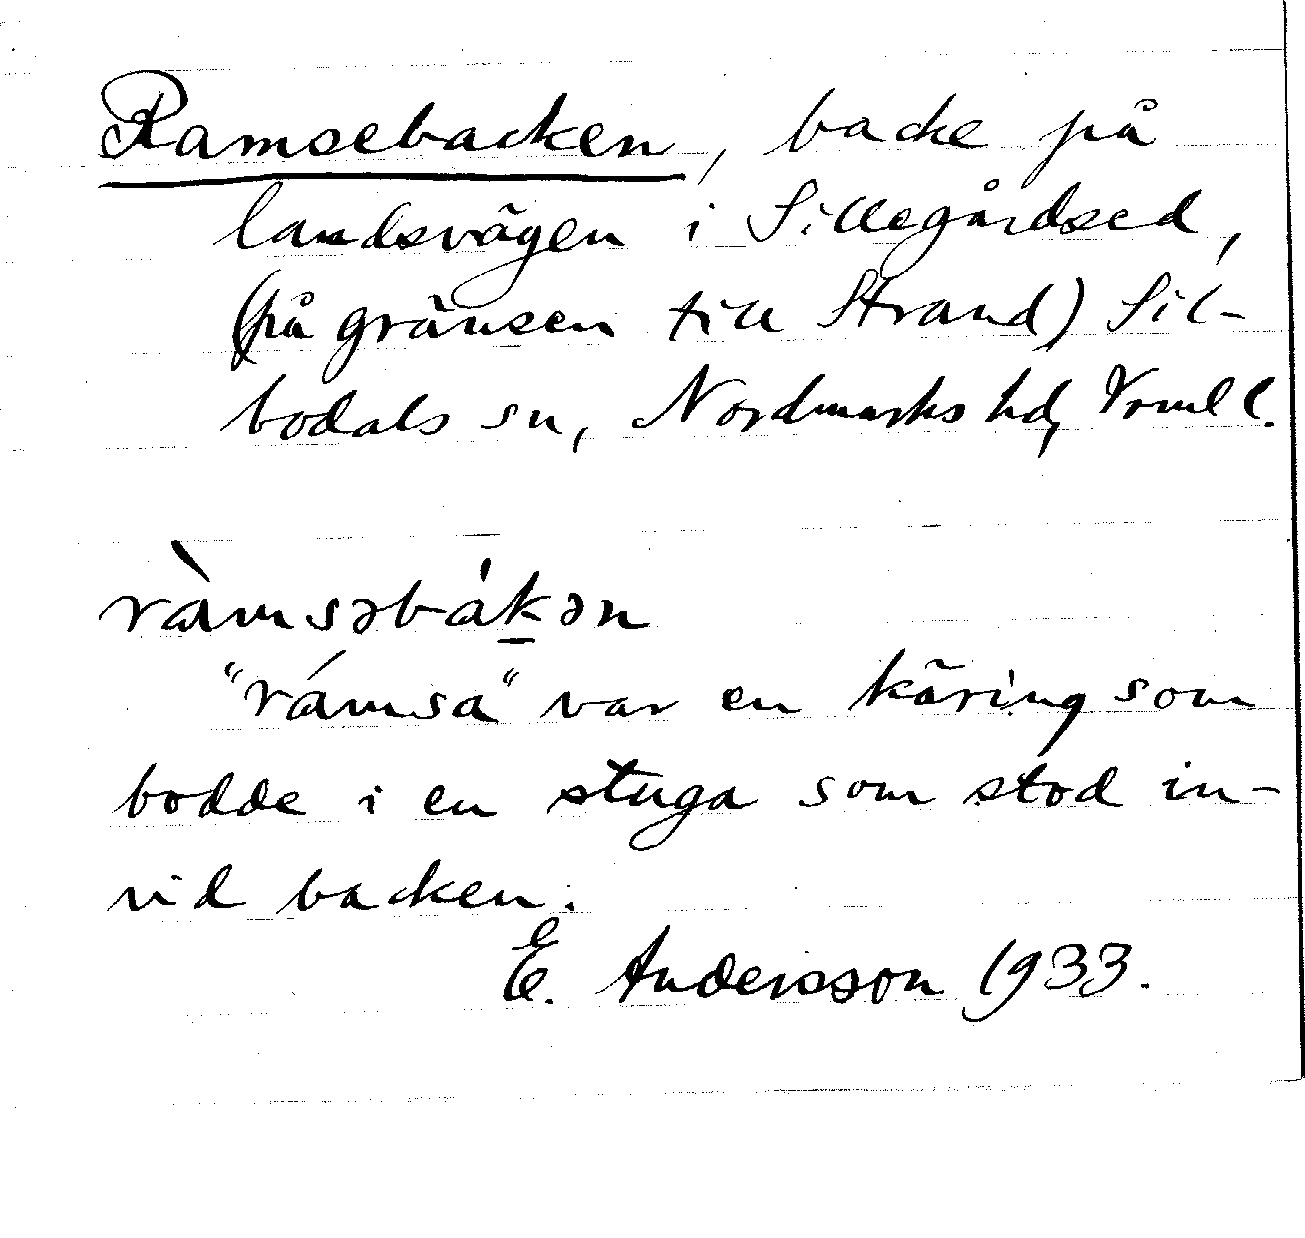 Ramsebacken, backe på
landsvägen i Sillegårdsed,
(på gränsen till Strand) Sil-
bodals sn, Nordmarks hd, Vrml l.
ràmsəbák̲ən
"rámsa" var en käring som
bodde i en stuga som stod in-
vid backen.
E. Andersson 1933.